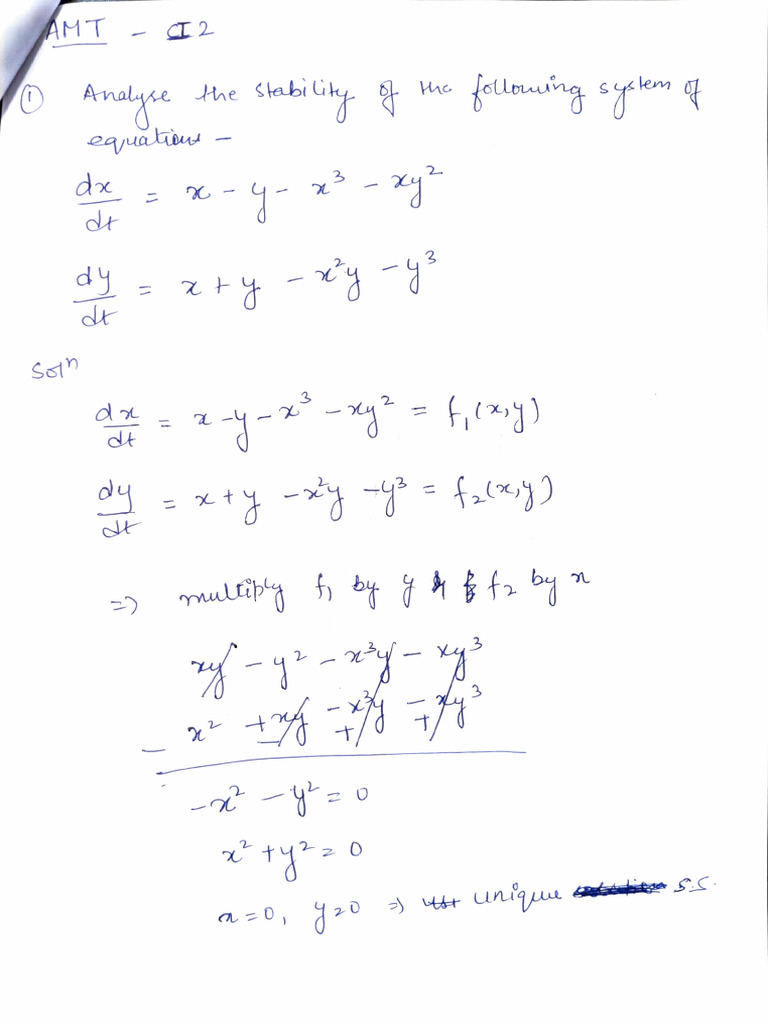 AMT - CI 2
① Analyse the stability of the following system of
equations -
dx/dt = x - y - x³ - xy²
dy/dt = x + y - x²y - y³
Solⁿ
dx/dt = x - y - x³ - xy² = f₁(x,y)
dy/dt = x + y - x²y - y³ = f₂(x,y)
=) multiply f₁ by y & f₂ by x
xy - y² - x³y - xy³
- x² + xy - x³y - xy³
- + +
-x² - y² = 0
x² + y² = 0
x=0, y=0 =) unique S.S.